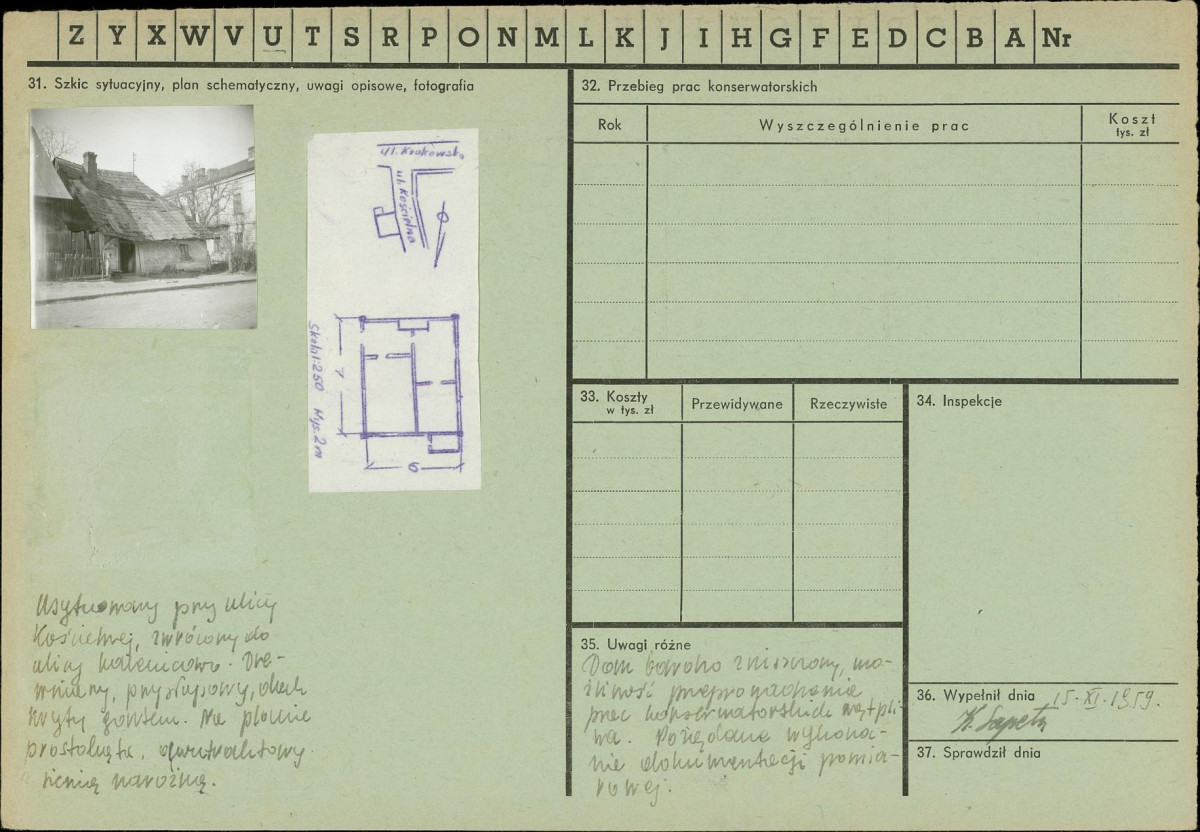 Z Y X W V U T S R P O N M L K J I H G F E D C B A Nr
31. Szkic sytuacyjny, plan schematyczny, uwagi opisowe, fotografia
ul. Krakowska
ul. Kościelna
Skala 1:250 Wys. 2m
7
6
Usytuowany przy ulicy
Kościelnej, zwrócony do
ulicy kalenicowo. Dre-
wniany, przysłupowy, dach
kryty gontem. Na planie
prostokąta,
sienią narożną.
32. Przebieg prac konserwatorskich
Rok
Wyszczególnienie prac
Koszt
tys. zł
33. Koszty
w tys. zł
Przewidywane
Rzeczywiste
34. Inspekcje
35. Uwagi różne
Dom bardzo zniszczony, mo-
żliwość przeprowadzenia
prac konserwatorskich wątpli-
wa. Pożądane wykona-
nie dokumentacji pomia-
rowej.
36. Wypełnił dnia 15. XI. 1959.
K. Sapeta
37. Sprawdził dnia